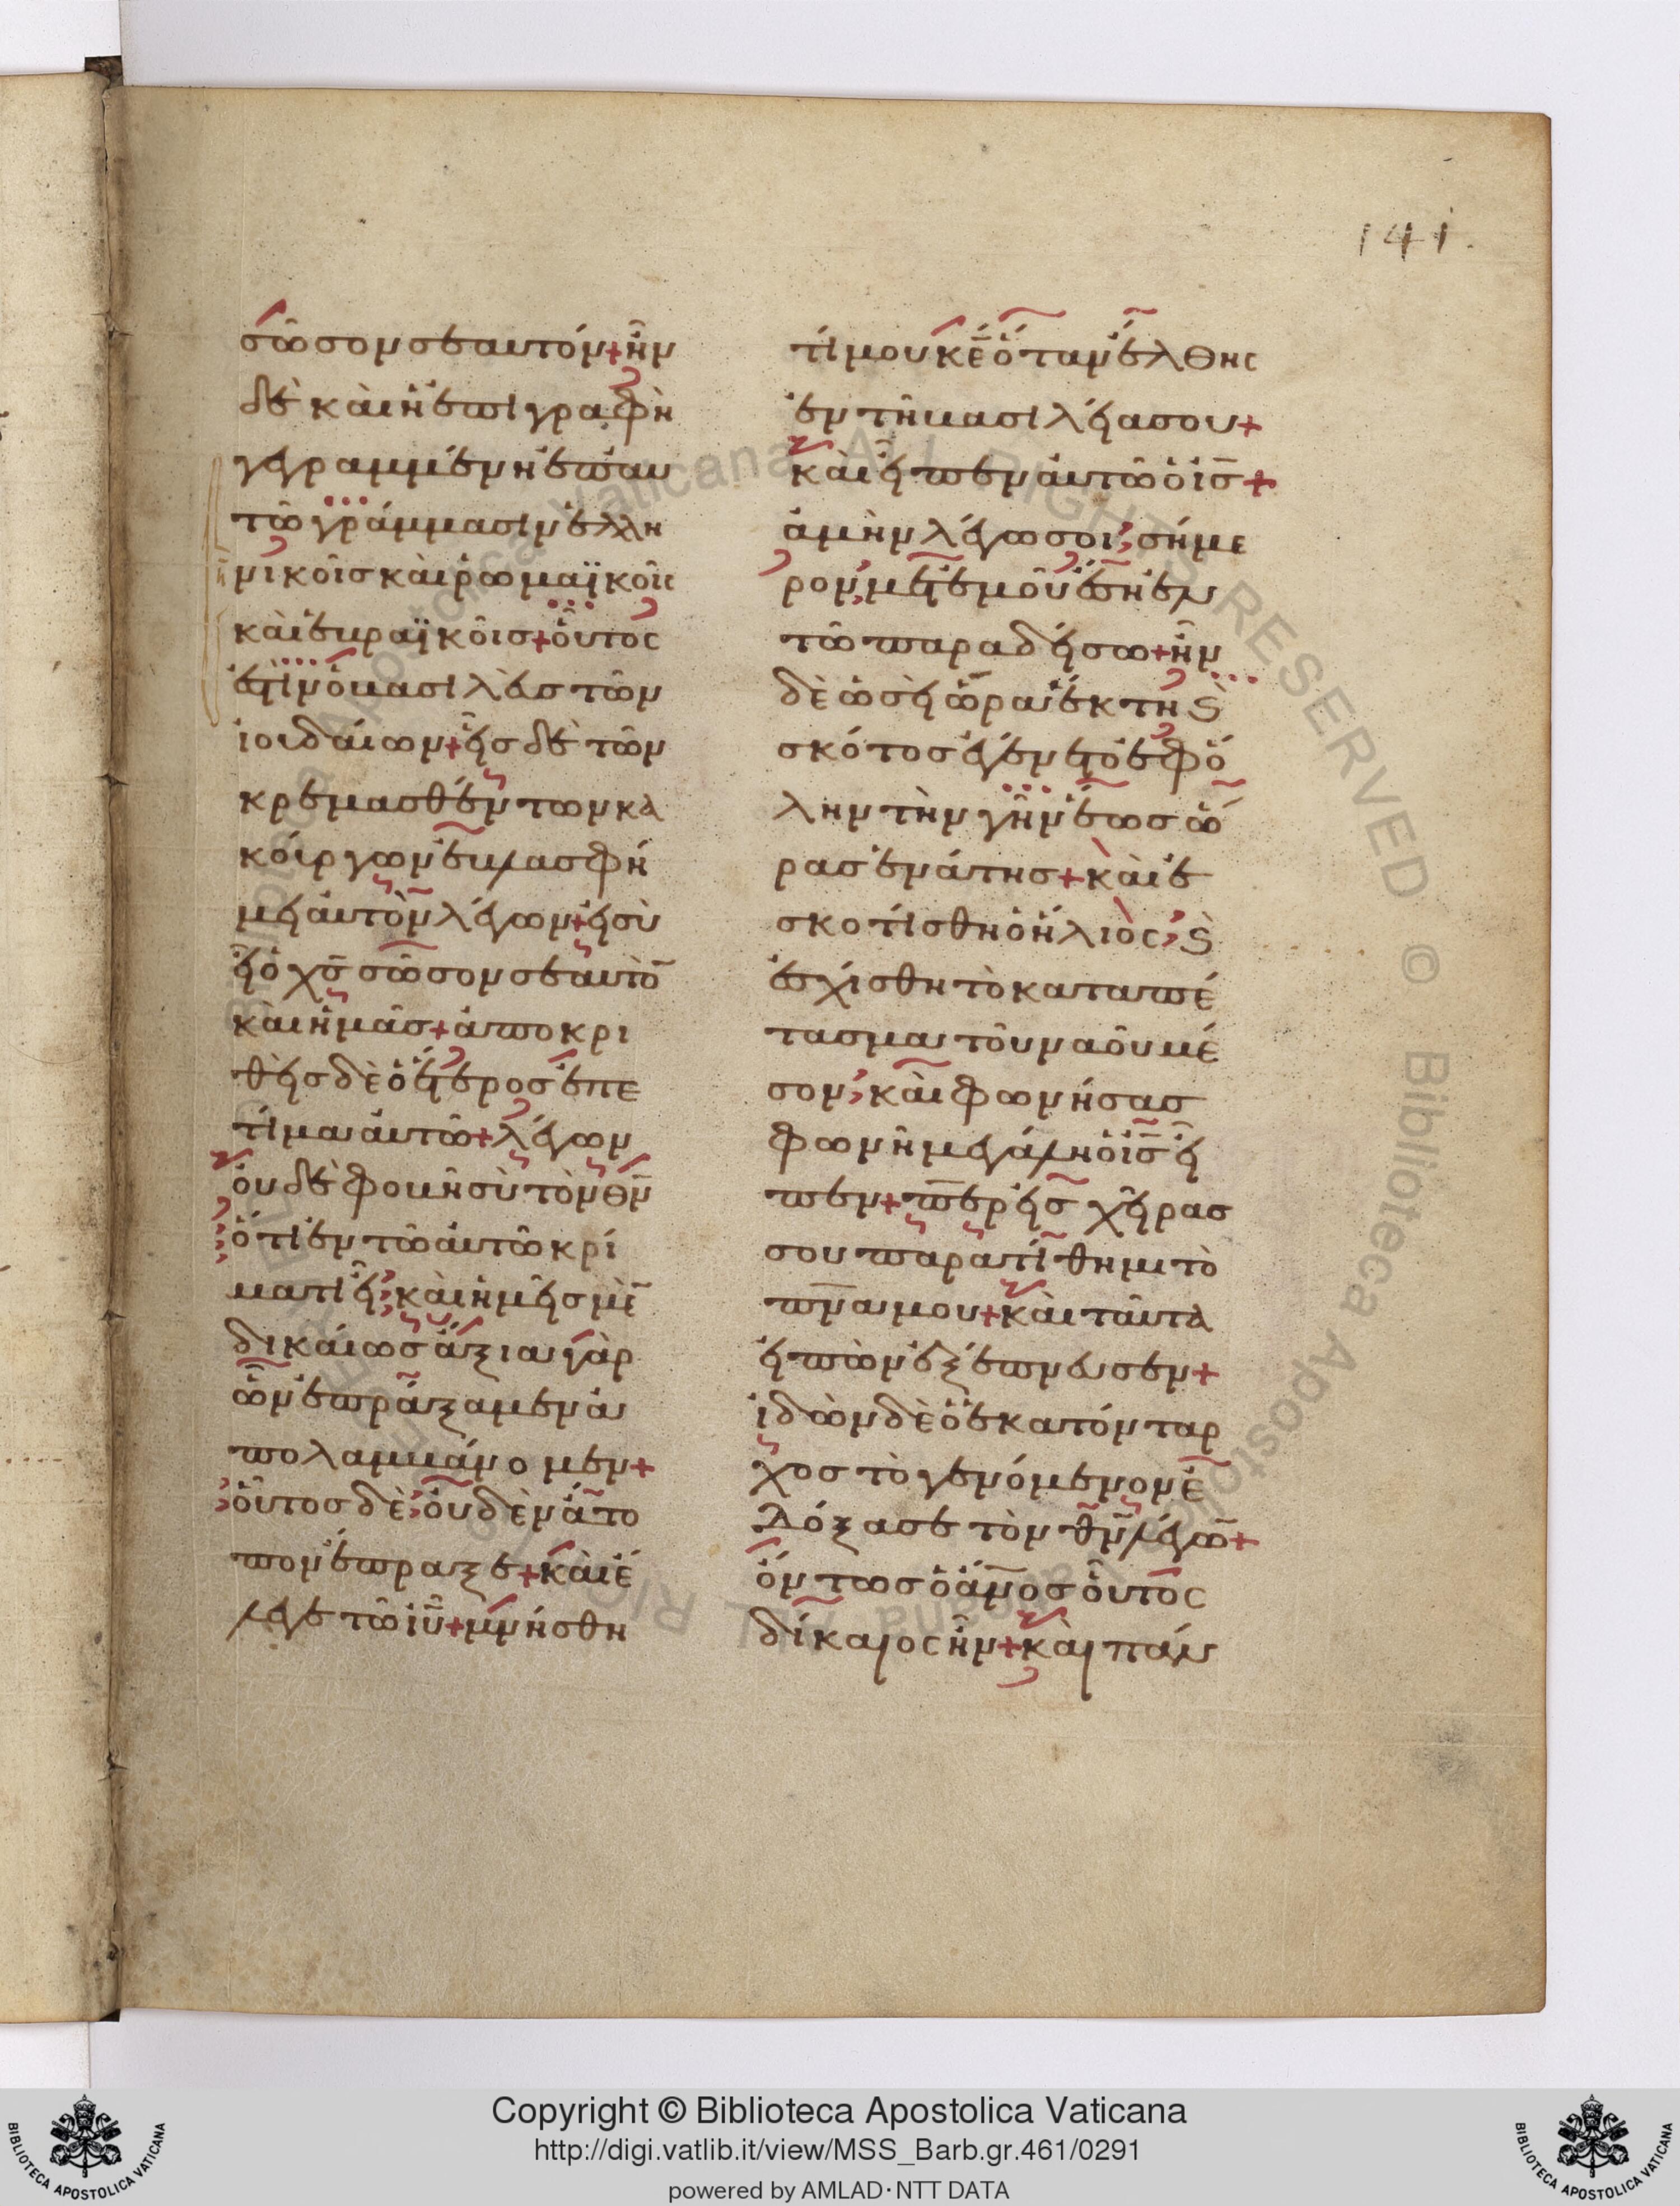 141.
σῶσον σεαυτόν + ἦν
δὲ καὶ ἡ ἐπιγραφὴ
γεγραμμένη ἐπ αυ
τῶ γράμμασιν ἑλλη
νικοῖς καὶ ῥωμαϊκοῖς
καὶ ἑβραϊκοῖς + οὗτος
ἐστὶν ὁ βασιλεὺς τῶν
ἰουδαίων + εἷς δὲ τῶν
κρεμασθέντων κα
κούργων ἐβλασφή
μει αὐτὸν λέγων + εἰ σὺ
εἶ ὁ χς̅ σῶσον σεαυτὸ̅
καὶ ἡμᾶς + ἀποκρι
θεὶς δὲ ὁ ἕτερος ἐπε
τίμα αὐτῶ + λέγων
οὐδὲ φοβῆ σὺ τὸν θν̅
ὅτι ἐν τῶ αὐτῶ κρί
ματι εἶ, καὶ ἡμεῖς μὲ̅
δικαίως ἄξια γὰρ
ὧν ἐπράξαμεν ἀ
πολαμβάνομεν +
οὗτος δὲ, οὐδὲν ἄτο
πον ἔπραξε + καὶ ἔ
λεγε τῶ ιυ̅ + μνήσθη
τί μου κε̅ ὅταν ἔλθης
ἐν τῆ βασιλείασου +
καὶ εἶπεν αὐτῶ ὁ ις̅ +
ἀμὴν λέγω σοι, σήμε
ρον, μετ ἐμοῦ ἔση ἐν
τῶ παραδείσω + ἦν
δὲ ὡσεὶ ὥρα ἕκτη ϗ
σκότος ἐγένετο ἐφ ὅ
λην τὴν γῆν ἕως ὥ
ρας ἐνάτης + καὶ ἐ
σκοτίσθη ὁ ἥλιος, ϗ
ἐσχίσθη τὸ καταπέ
τασμα τοῦ ναοῦ μέ
σον, καὶ φωνήσας
φωνῆ μεγάλη ὁ ις̅ εἶ
πεν + πε̅ρ εἰς χεῖρας
σου παρατίθημι τὸ
πν̅α μου + καὶ ταῦτα
εἰπὼν ἐξέπνευσεν +
ἰδὼν δὲ ὁ ἑκατόνταρ
χος τὸ γενόμενον ἐ
δόξασε τὸν θν̅ λέγω̅ +
ὄντως ὁ ἄν̅ος οὗτος
δίκαιος ἦν + καὶ πάν
Copyright © Biblioteca Apostolica Vaticana
http://digi.vatlib.it/view/MSS_Barb.gr.461/0291
powered by AMLAD·NTT DATA
BIBLIOTECA APOSTOLICA VATICANA
BIBLIOTECA APOSTOLICA VATICANA